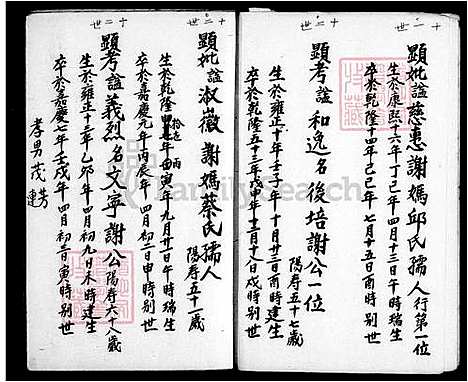 十一世
顯妣諡慈惠謝媽邱氏孺人行第一位
生於康熙十六年丁巳年四月十三日午時瑞生
卒於乾隆十四年己巳年七月十五日酉時別世
十二世
顯考諡和逸名後培謝公一位
陽寿五十七歲
生於雍正十年壬子年十月廿三日酉時建生
卒於乾隆五十三年戊申年十二月十八日戌時別世
十二世
顯妣諡淑薇謝媽蔡氏孺人
陽寿五十一歲
生於乾隆年丙寅年九月廿一日午時瑞生
卒於嘉慶元年丙辰年四月初三日申時別世
十三世
顯考諡義烈名文寧謝公陽寿六十八歲
生於雍正十三年乙卯年四月初九日未時建生
卒於嘉慶七年壬戌年四月初三日寅時別世
孝男茂芳
連